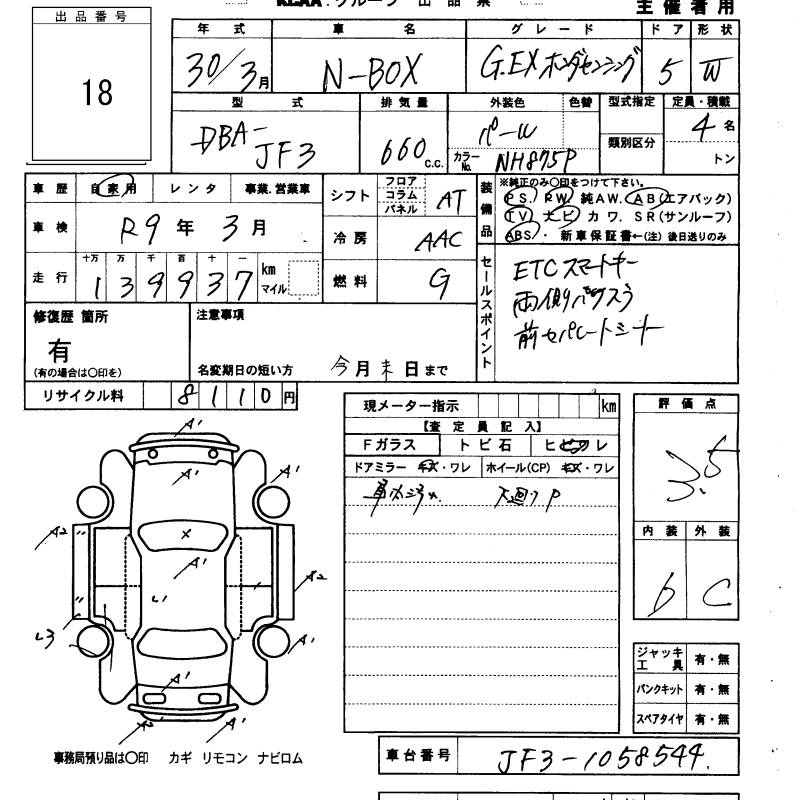 KCAA.グループ 出品票
主催者用
出品番号
18
年式 車名 グレード ドア 形状
30/3月 N-BOX G.EXホンダセンシング 5 W
型式 排気量 外装色 色替 型式指定 定員・積載
DBA-JF3 660c.c. パール カラーNo. NH875P 類別区分 4名
トン
車歴 自家用 レンタ 事業.営業車
車検 R9年 3月
走行 十万 万 千 百 十 一
139937 km マイル
シフト フロア コラム パネル AT
冷房 AAC
燃料 G
装備品
※純正のみ○印をつけて下さい。
PS. PW. 純AW. AB(エアバック)
TV ナビ カワ. SR(サンルーフ)
ABS・ 新車保証書←(注)後日送りのみ
セールスポイント
ETC スマートキー
両側パワスラ
前セパレートシート
修復歴 箇所
有
(有の場合は○印を)
注意事項
名変期日の短い方 今月末日まで
リサイクル料 8110円
現メーター指示 km
【査定員記入】
Fガラス トビ石 ヒビワレ
ドアミラー キズ・ワレ ホイール(CP) キズ・ワレ
下廻りP
評価点
3.5
内装 外装
b C
A' A'
A' A'
A2 〃 X
A'
〃 A2
L3 A'
A' A'
A2 A'
ジャッキ工具 有・無
パンクキット 有・無
スペアタイヤ 有・無
事務局預り品は○印 カギ リモコン ナビロム
車台番号 JF3-1058544.